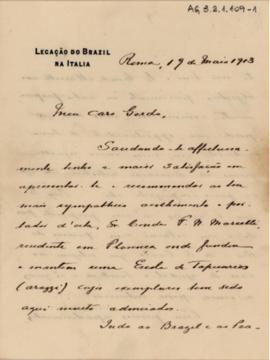 AG 3.2.1.109-1
LEGAÇÃO DO BRAZIL
NA ITALIA
Roma, 19 de Maio 1913
Meu caro Gordo,
Saudando-te affectuosa
mente tenho a maior satisfação em
apresentar-te e recommendar ao teu
mais sympathico acolhimento o por-
tador d'esta, Sr Conde F. N. Marcello
residente em Florença onde fundou
e mantem uma Escola de Tapeçarias
(arazzi) cujos exemplares tem sido
aqui muito admirados.
Indo ao Brazil e ao